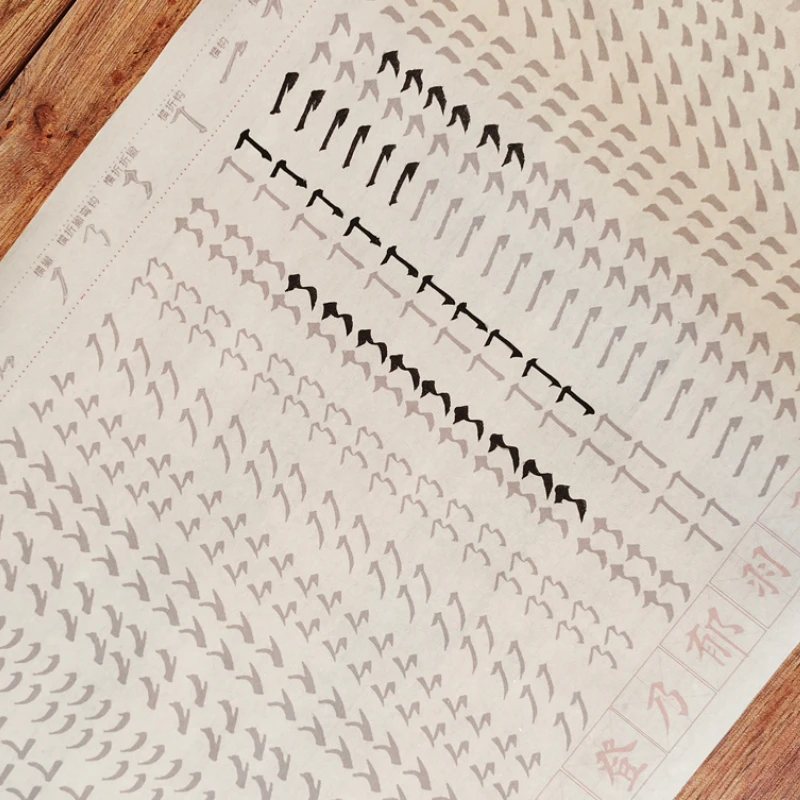 横撇
横折撇弯钩
横折折撇
横折钩
横钩
登乃郁羽